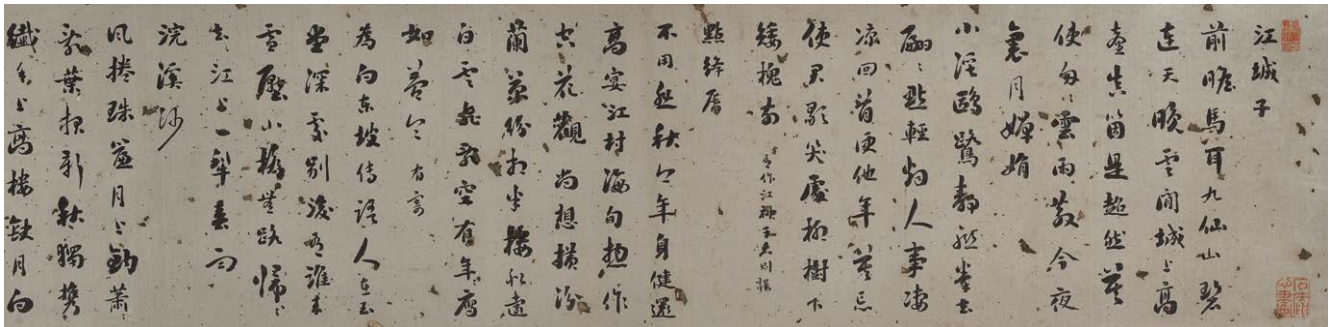 江城子
前瞻馬耳九仙山碧
連天晚雲閒城上高
臺真箇是超然莫
使匆〻雲雨散今夜
裏月嬋娟
小溪鷗鷺靜聯拳去
翩〻點輕煙人事凄
涼回首便他年莫忘
使君歌笑處柳樹下
矮槐前
點絳唇
不用悲秋今年身健還
高宴江村海甸總作
空花觀尚想橫汾
蘭菊紛相半樓船遠
白雲飛亂空有年〻鴈
如夢令 有寄
為向東坡傳語人在玉
堂深處別後有誰來
雪壓小橋無路歸〻
去江上一犁春雨
浣溪沙
風捲珠簾月上鈎蕭〻
亂葉報新秋獨攜
纖手上高樓缺月向